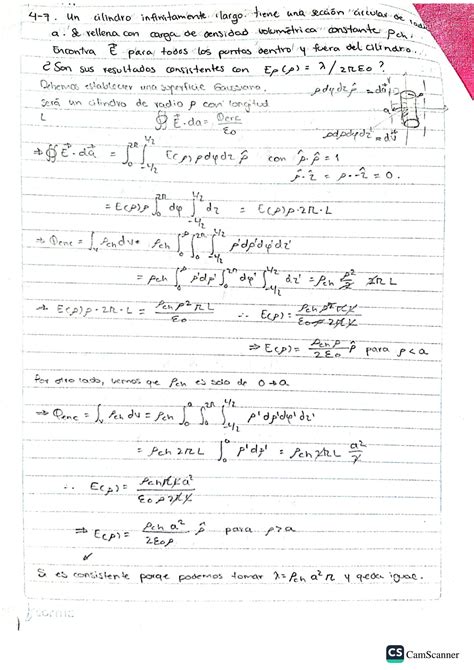 4-7. Un cilindro infinitamente largo tiene una sección circular de radio
a. Se rellena con carga de densidad volumétrica constante ρch.
Encontra E⃗ para todos los puntos dentro y fuera del cilindro.
¿Son sus resultados consistentes con Eρ(ρ) = λ / 2πε0 ?
Debemos establecer una superficie Gaussiana.
será un cilindro de radio ρ con longitud
L ∯ E⃗·da = Qenc/ε0
ρdφdz ρ̂ = da⃗
ρdρdφdz' = dv
⇒ ∯ E⃗·da⃗ = ∫₀^2π ∫_-L/2^L/2 E(ρ) ρdφdz ρ̂ con ρ̂·ρ̂ = 1
ρ̂·ẑ = ρ·-ẑ = 0.
= E(ρ)ρ ∫₀^2π dφ ∫_-L/2^L/2 dz = E(ρ)ρ·2π·L
⇒ Qenc = ∫v ρch dv = ρch ∫₀^ρ ∫₀^2π ∫_-L/2^L/2 ρ'dρ'dφ'dz'
= ρch ∫₀^ρ ρ'dρ' ∫₀^2π dφ' ∫_-L/2^L/2 dz' = ρch ρ²/2 2πL
⇒ E(ρ)ρ·2π·L = ρch ρ² πL / ε0 ∴ E(ρ) = ρch ρ² πL / ε0 ρ 2πL
⇒ E(ρ) = ρch ρ / 2ε0 ρ̂ para ρ<a
Por otro lado, vemos que ρch es solo de 0→a
⇒ Qenc = ∫v ρch dv = ρch ∫₀^a ∫₀^2π ∫_-L/2^L/2 ρ'dρ'dφ'dz'
= ρch 2πL ∫₀^a ρ'dρ' = ρch 2πL a²/2
∴ E(ρ) = ρch πL a² / ε0 ρ 2πL
⇒ E(ρ) = ρch a² / 2ε0ρ ρ̂ para ρ>a
Si es consistente porqe podemos tomar λ = ρch a² π y queda igual.
CS CamScanner